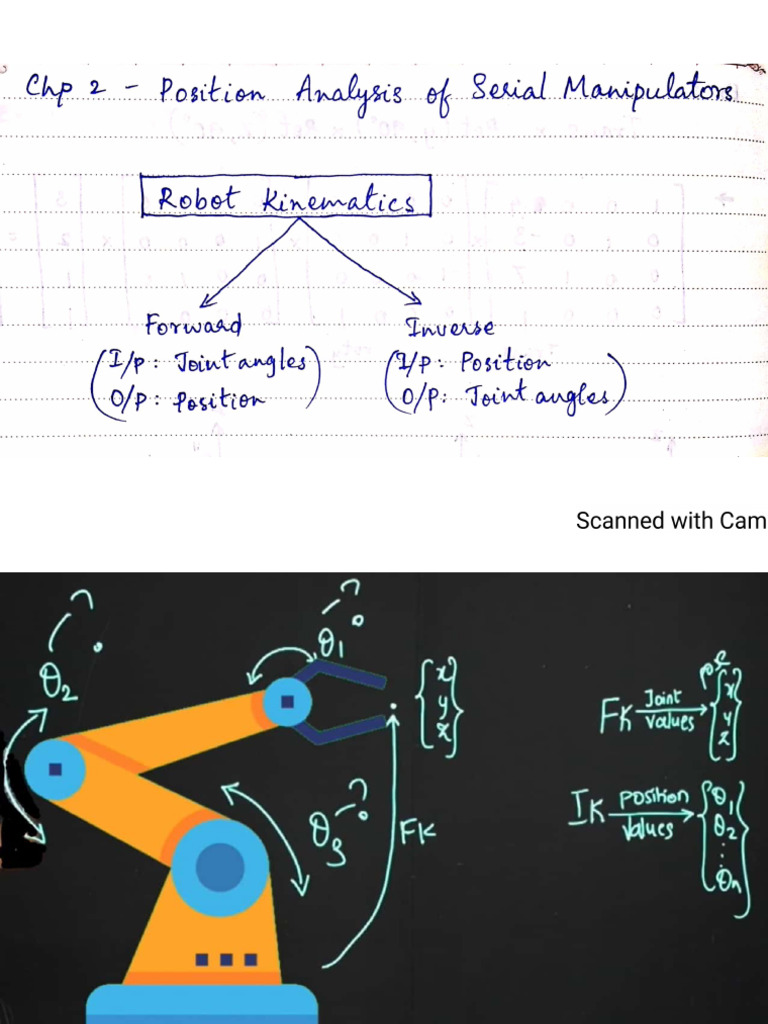 Chp 2 - Position Analysis of Serial Manipulators
Robot Kinematics
Forward
(I/p: Joint angles)
O/p: Position
Inverse
(I/p: Position)
O/p: Joint angles
Scanned with Cam
?
θ2
?
θ1
{x
y
z}
θ3 ?
FK
FK Joint values → {x
y
z}
IK Position values → {θ1
θ2
⋮
θn}